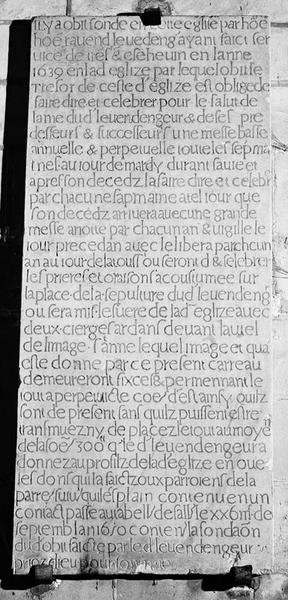 il y a obit fonde en ceste eglise par hoē
hōe ravend levedeng ayant faict ser
uice de & esheuin en lanne
1639 en lad eglize par lequel obit le
tresor de ceste d eglize est oblige de
faire dire et celebrer pour le salut de
lame dud levendengeur & de ses pre
desseurs & successeurs une messe basse
annuelle & perpetuelle toute les sepma
ines au iour de mardy durant sa uie et
apres son decedz la faire dire et celebr
par chacune sapmaine a tel iour que
son decedz arriuera auec une grande
messe a note par chacun an & uigille le
iour precedan auec le libera par chcun
an au iour de la touss ou seront d & selebrer
les prieres et oraisons acoustumee sur
la place de la sepulture dud levendeng
ou sera mis le suere de lad eglize auec
deux cierges ardans deuant lautel
de limage s anne lequel image et qua
este donne par ce present carreau
demeureront fixces & permennant le
tout a perpetuite coē destansy quilz
sont de present sans quilz puissent estre
transmuez ny deplacez le tout au moyē
de la soē 300 qe led levendengeur a
donnez au profitz de lad eglize en oue
les dons qui la faict zoux parroiens de la
parre suiu quil est plain contenue en un
contact passe au tabell de fall le xx6m de
septemb lan 1650 conten la fondaōn
dud obit faicte par led levendengeur
priez dieu pour son ame